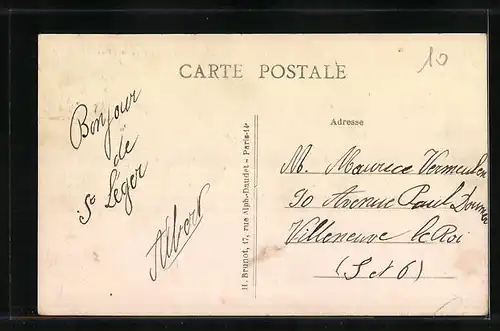 10
CARTE POSTALE
Bonjour
de
St Léger
Albert
H. Brunot, 17, rue Alph.-Daudet - Paris-14e
Adresse
M. Maurice Vermeulen
90 Avenue Paul Doumer
Villeneuve le Roi
(S et O)